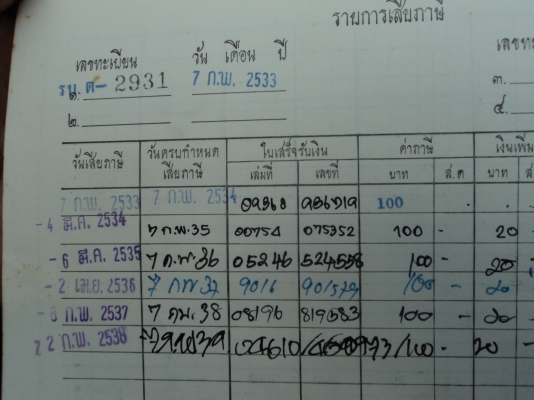 รายการเสียภาษี
เลขทะเบียน วัน เดือน ปี เลขทะ
๑. รบ.ต- 2931 7 ก.พ. 2533 ๓.
๒. ๔.
วันเสียภาษี วันครบกำหนดเสียภาษี ใบเสร็จรับเงิน ค่าภาษี เงินเพิ่ม
เล่มที่ เลขที่ บาท ส.ต บาท ส.
7 ก.พ. 2533 7 ก.พ. 2534 100
-4 มี.ค. 2534 7 ก.พ. 35 00754 075352 100 - 20 -
-6 มี.ค. 2535 7 ก.พ. 36 05246 524558 100 - 20
-2 เม.ย. 2536 7 กพ 37 9016 901579 100 - 20
-8 ก.พ. 2537 7 กพ. 38 08196 819583 100 - 20 -
22 ก.พ. 2538 100 - 20 -